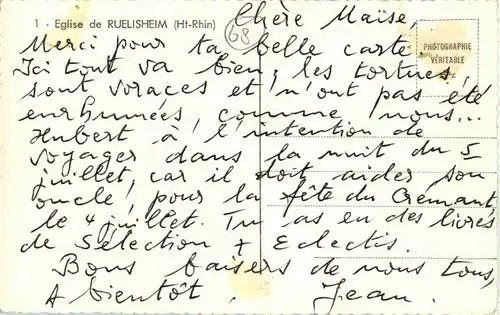 1 - Eglise de RUELISHEIM (Ht-Rhin)
68
PHOTOGRAPHIE
VÉRITABLE
Chère Maïse,
Merci pour ta belle carte.
Ici tout va bien, les tortues
sont voraces et n'ont pas été
enrhumées, comme nous...
Hubert a l'intention de
voyager dans la nuit du 5
juillet, car il doit aider son
oncle, pour la fête du Crémant,
le 4 juillet. Tu as eu des livres
de Sélection + Eclectis.
Bons baisers de nous tous,
A bientôt, Jean.